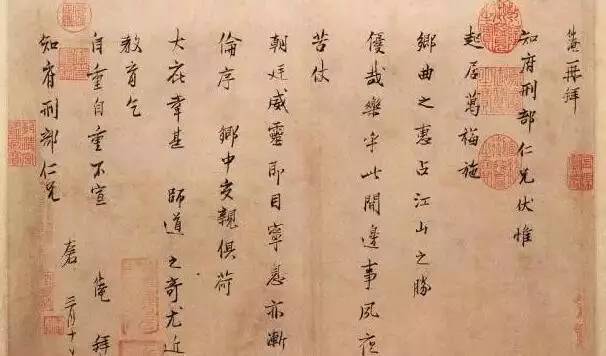 淹再拜
知府刑部仁兄伏惟
起居萬福施
鄉曲之惠占江山之勝
優哉樂乎此間邊事夙夜
苦仗
朝廷威靈即目寧息亦漸
倫序 鄉中交親俱荷
大庇幸甚 師道之奇尤近
教育乞
自重自重不宣 淹 拜
知府刑部仁兄
三月十